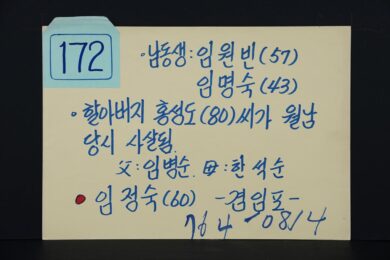 172
·남동생: 임원빈(57)
임명숙(43)
·할아버지 홍성도(80)씨가 월남
당시 사살됨.
父: 임병순. 母: 한석순
임정숙(60) -겸임포-
764-0814